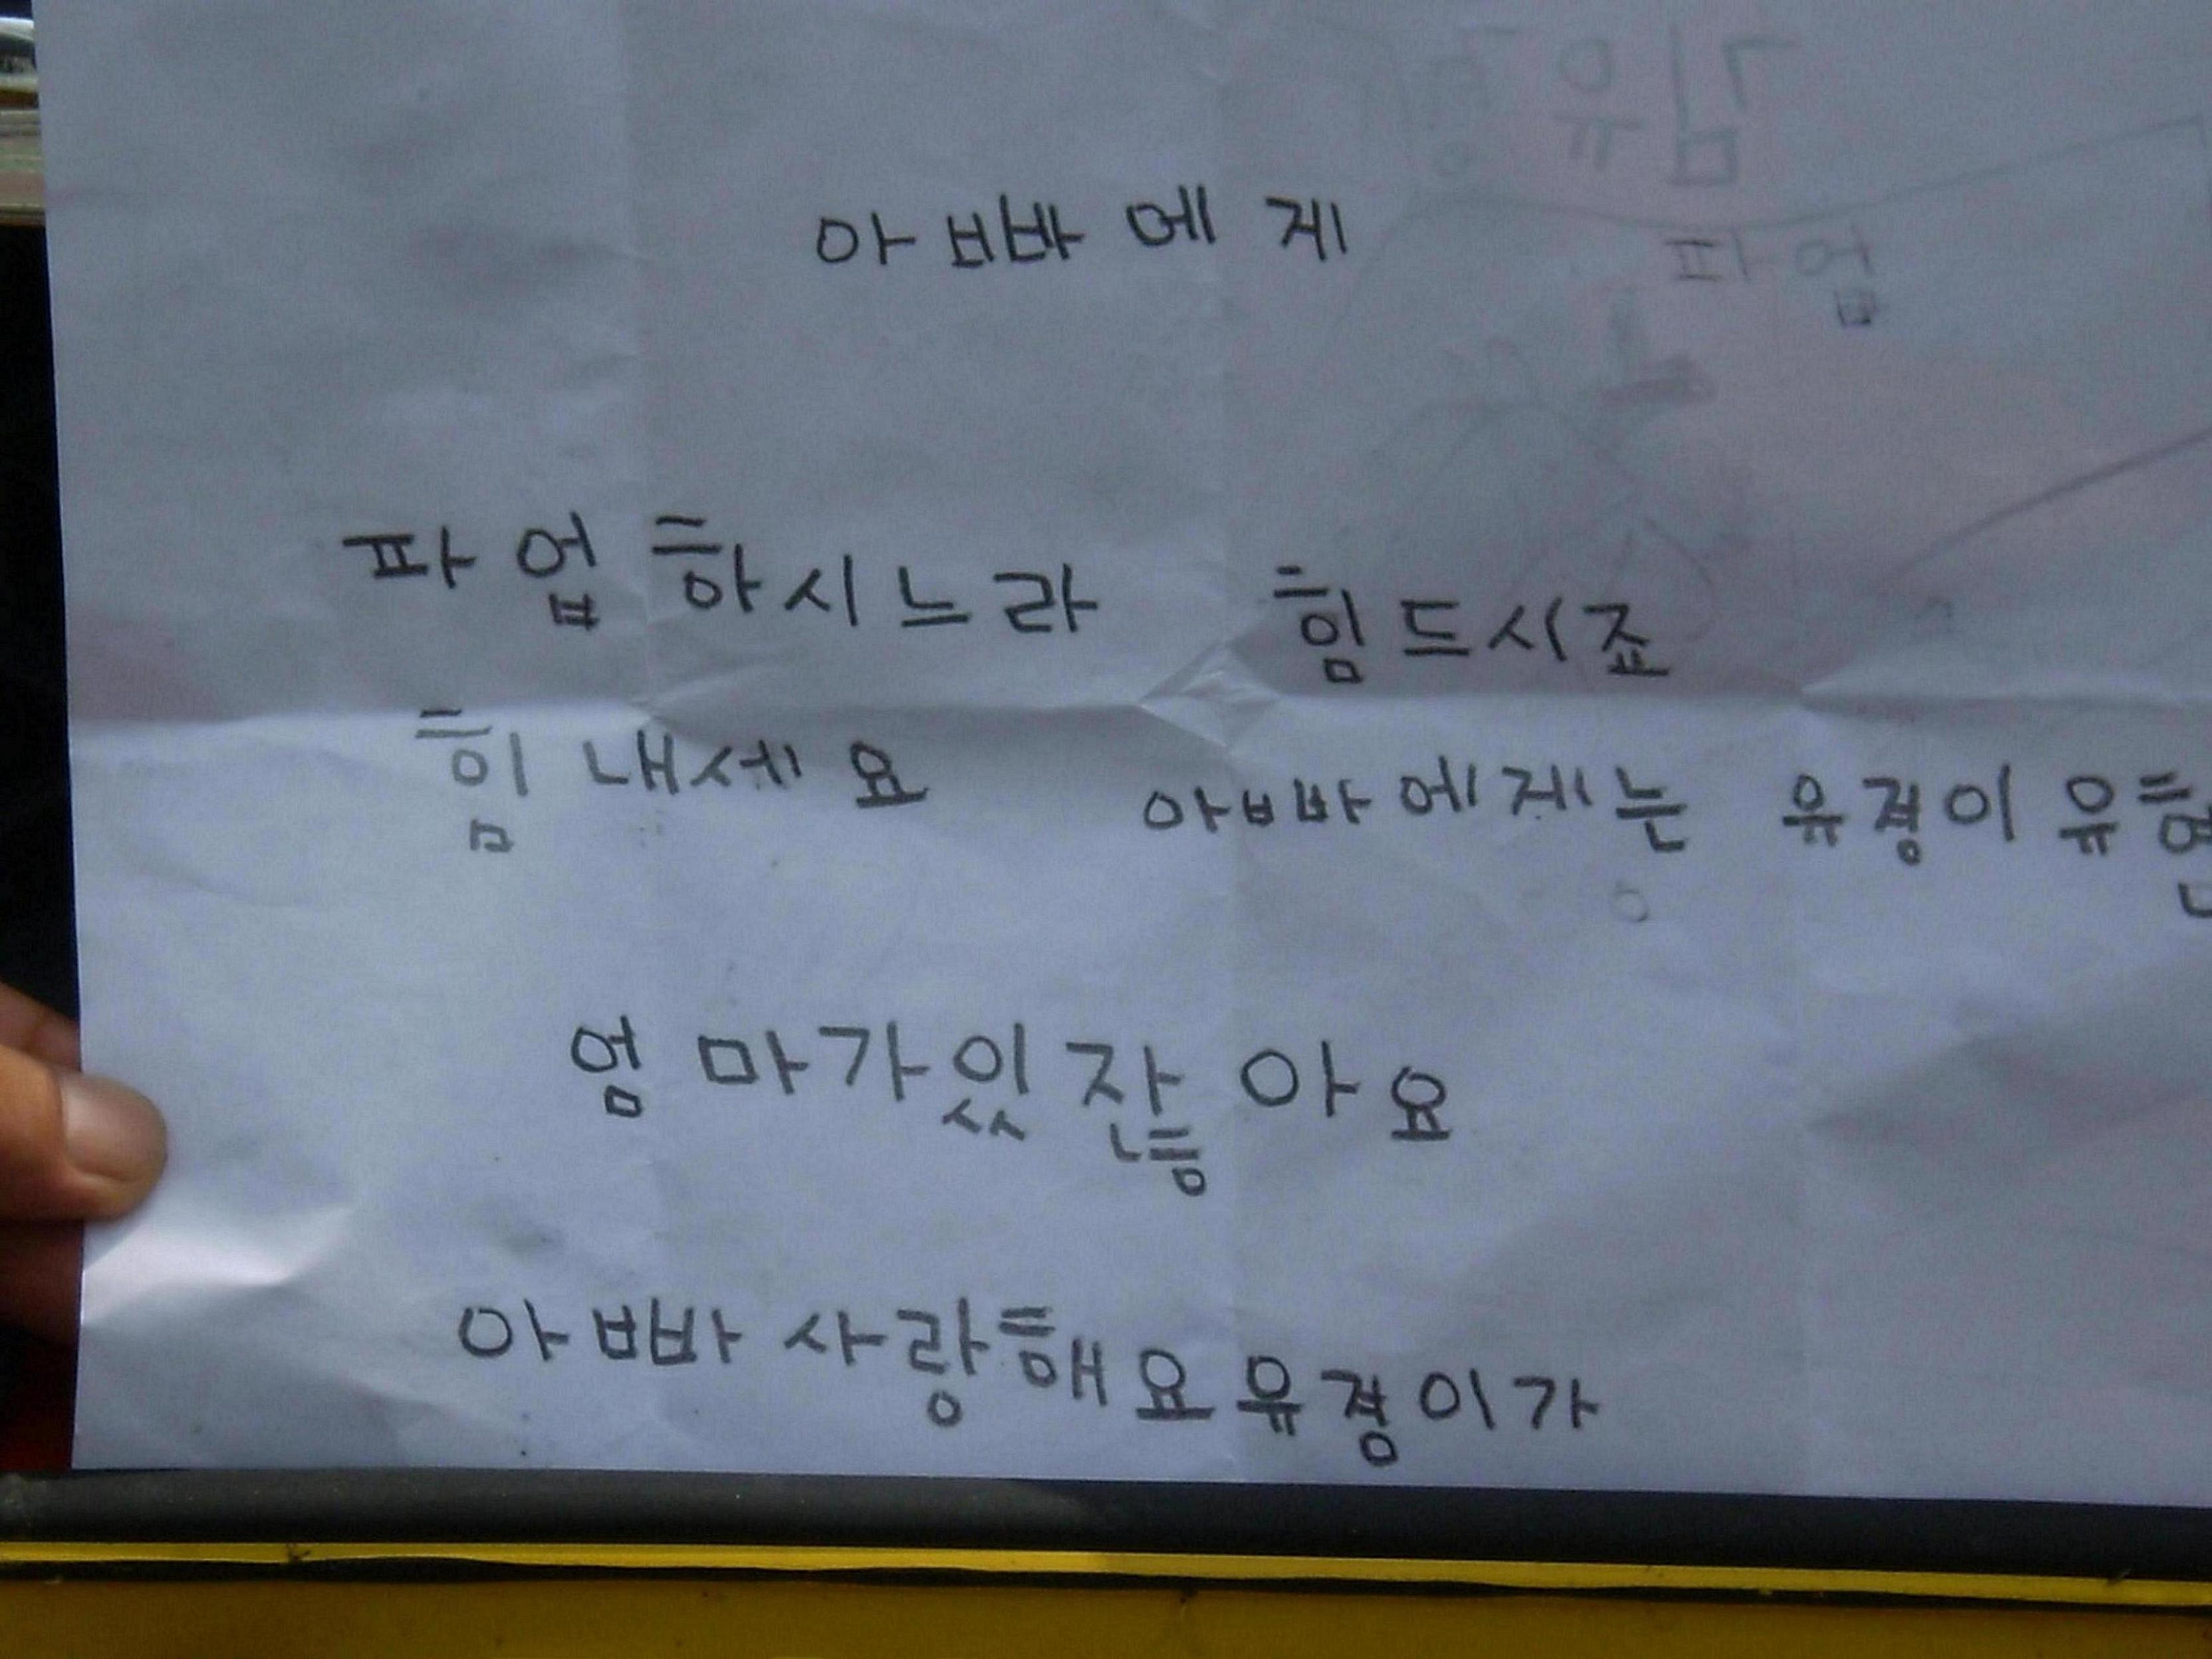 아빠에게
파업하시느라 힘드시죠
힘내세요 아빠에게는 유경이 유현
엄마가있잖아요
아빠사랑해요유경이가
파업